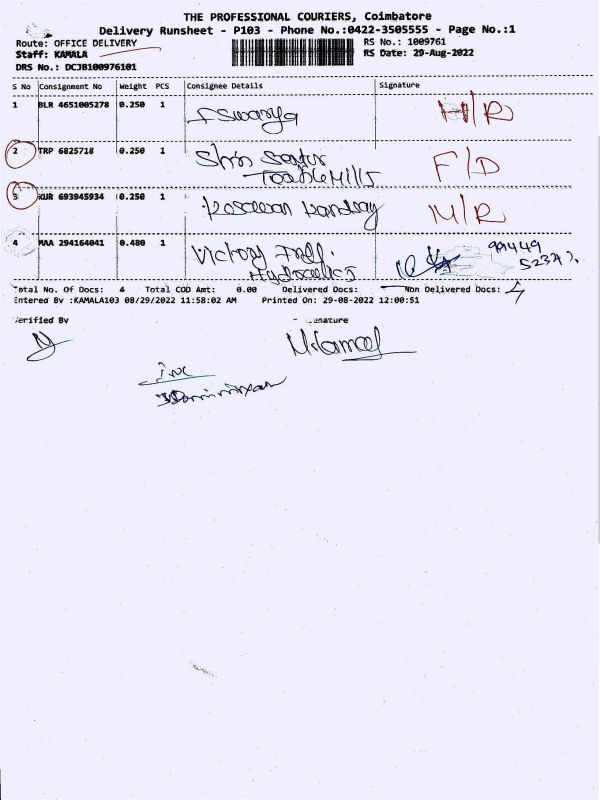 THE PROFESSIONAL COURIERS, Coimbatore
Delivery Runsheet - P103 - Phone No.:0422-3505555 - Page No.:1
Route: OFFICE DELIVERY
RS No.: 1009761
Staff: KAMALA
RS Date: 29-Aug-2022
DRS No.: DCJB100976101
S No Consignment No Weight PCS Consignee Details Signature
1 BLR 4651005278 0.250 1
2 TRP 6825718 0.250 1 F/D
3 KUR 693945934 0.250 1 M/R
4 MAA 294164041 0.480 1 Victory
Total No. Of Docs: 4 Total COD Amt: 0.00 Delivered Docs: Non Delivered Docs: 4
Entered By :KAMALA103 08/29/2022 11:58:02 AM Printed On: 29-08-2022 12:00:51
Verified By